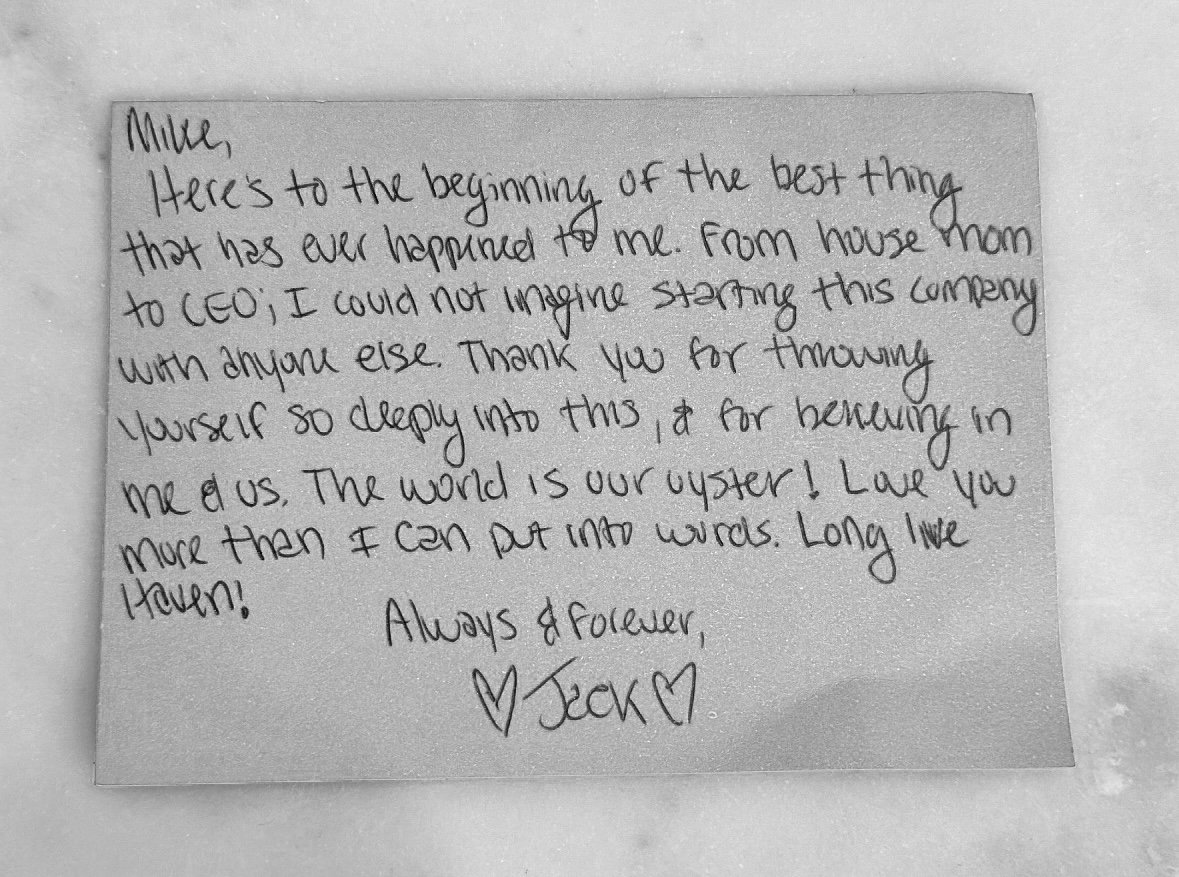 Mike,
Here's to the beginning of the best thing
that has ever happened to me. From house mom
to CEO; I could not imagine starting this company
with anyone else. Thank you for throwing
yourself so deeply into this, & for believing in
me & us. The world is our oyster! Love you
more than I can put into words. Long live
Haven!
Always & Forever,
♡ Jack ♡